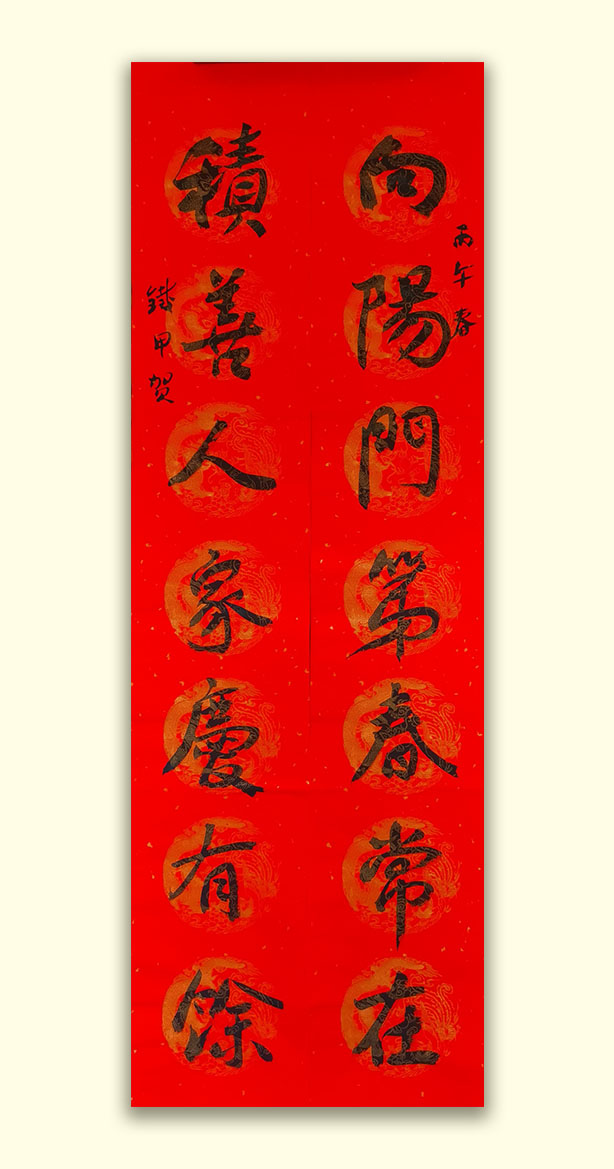 丙午春
向陽門第春常在
積善人家慶有餘
鐵甲贺